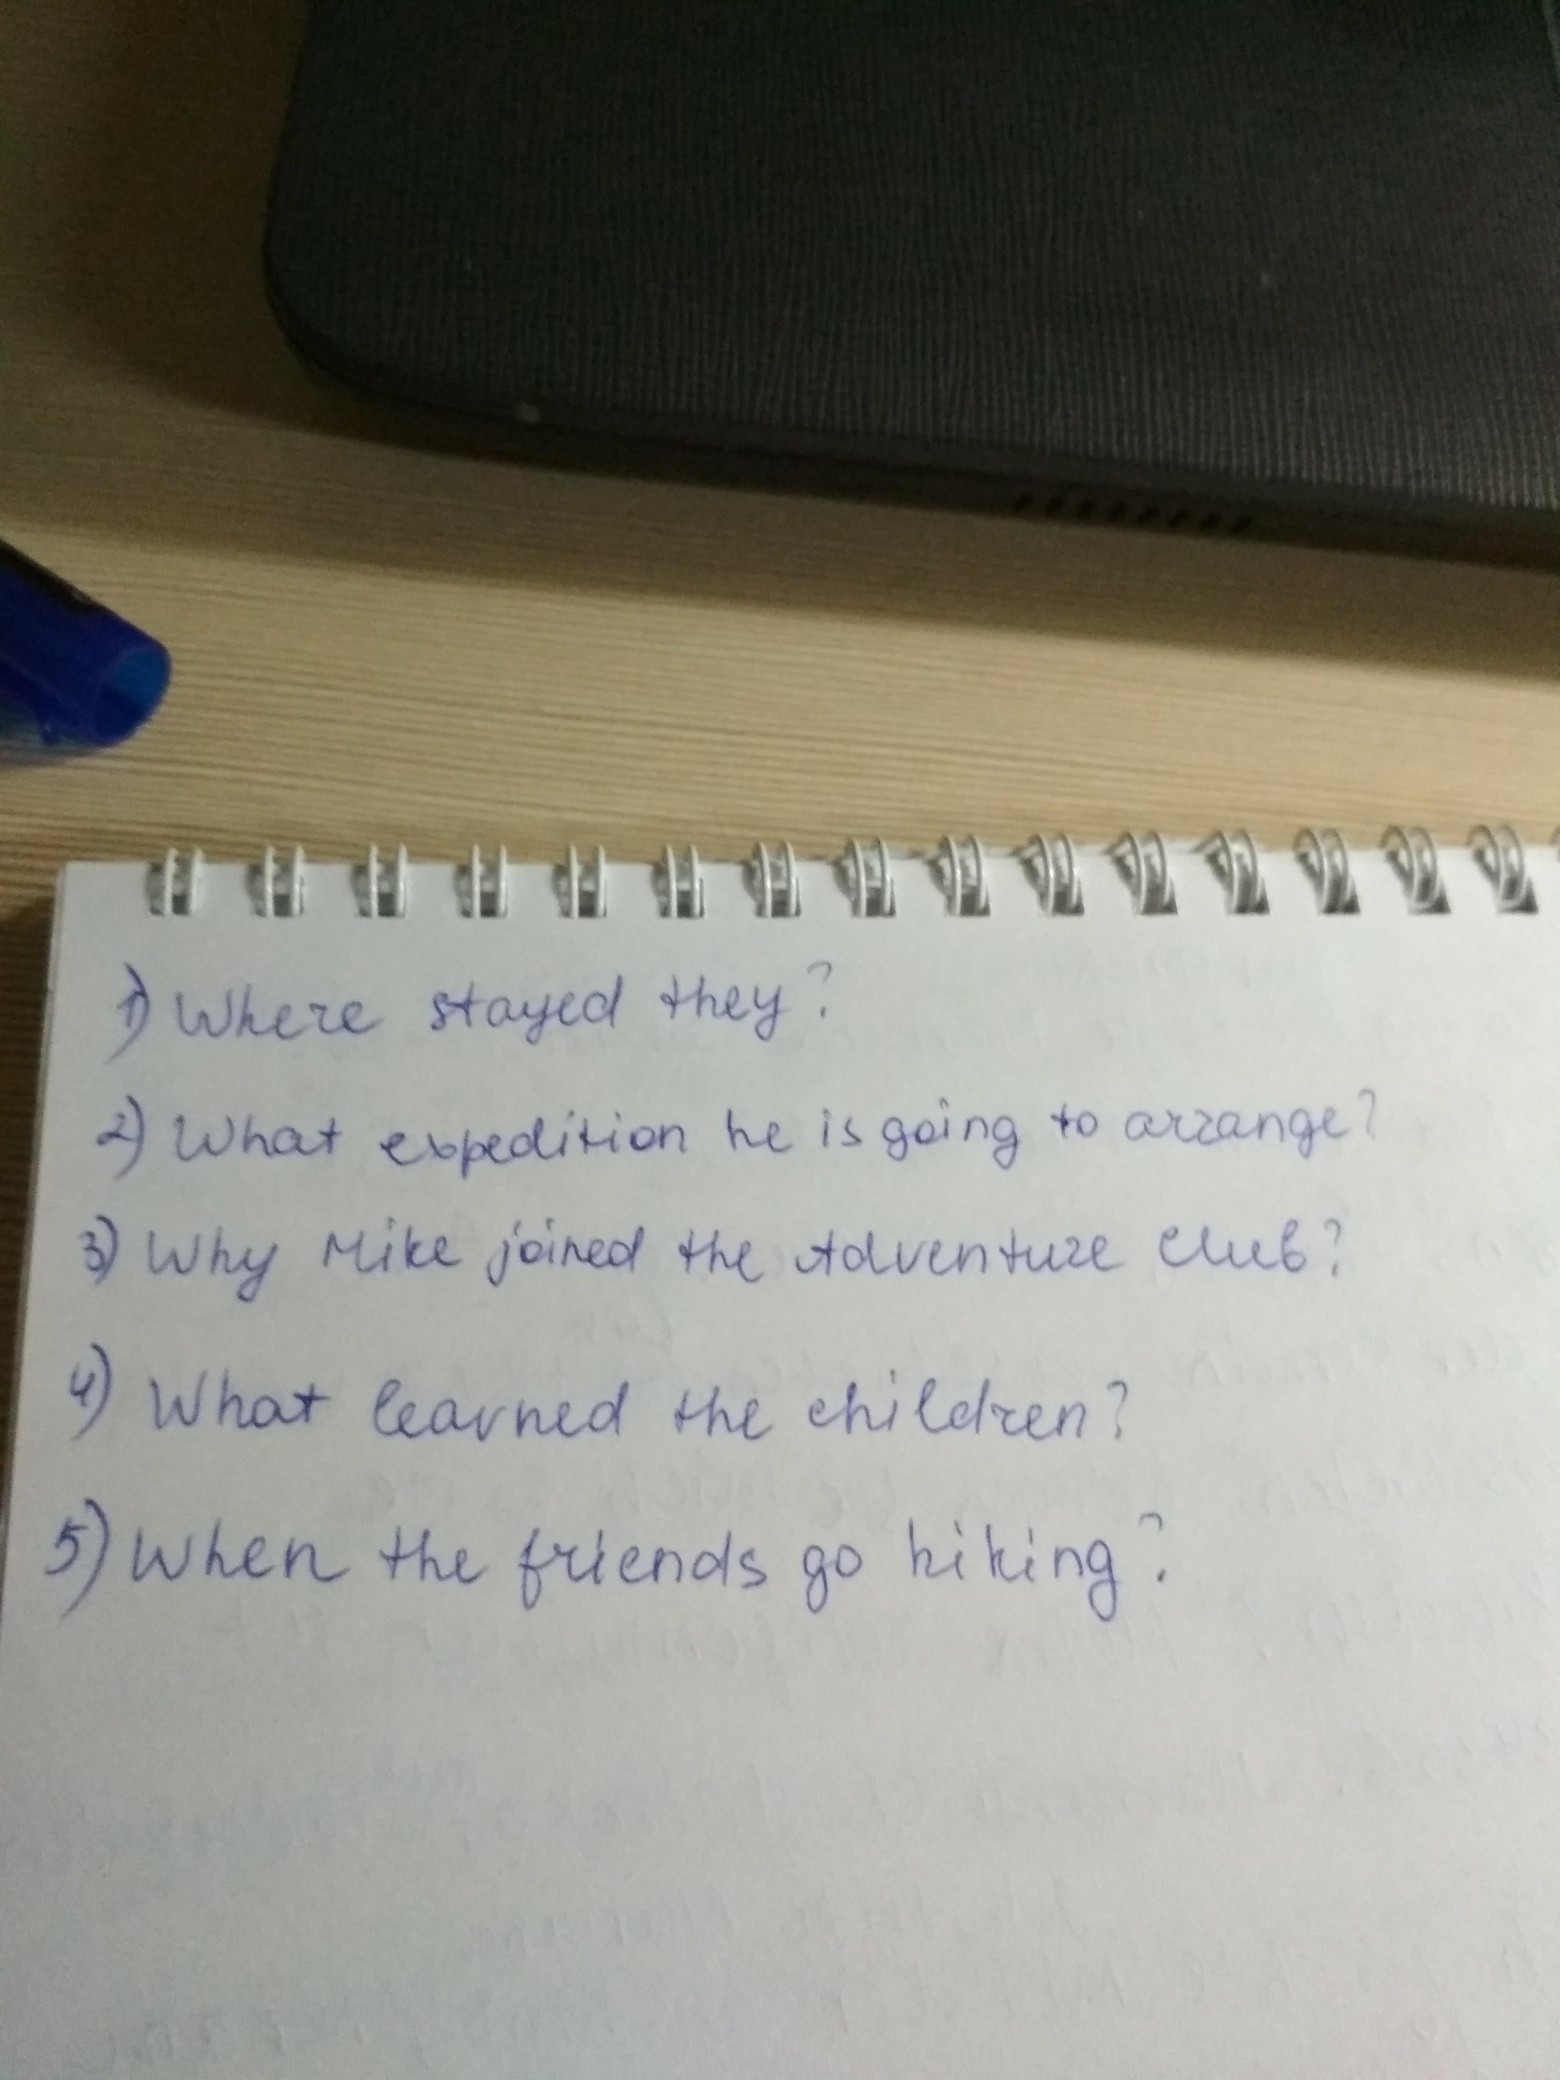 1) Where stayed they?
2) What expedition he is going to arrange?
3) Why Mike joined the Adventure Club?
4) What learned the children?
5) When the friends go hiking?